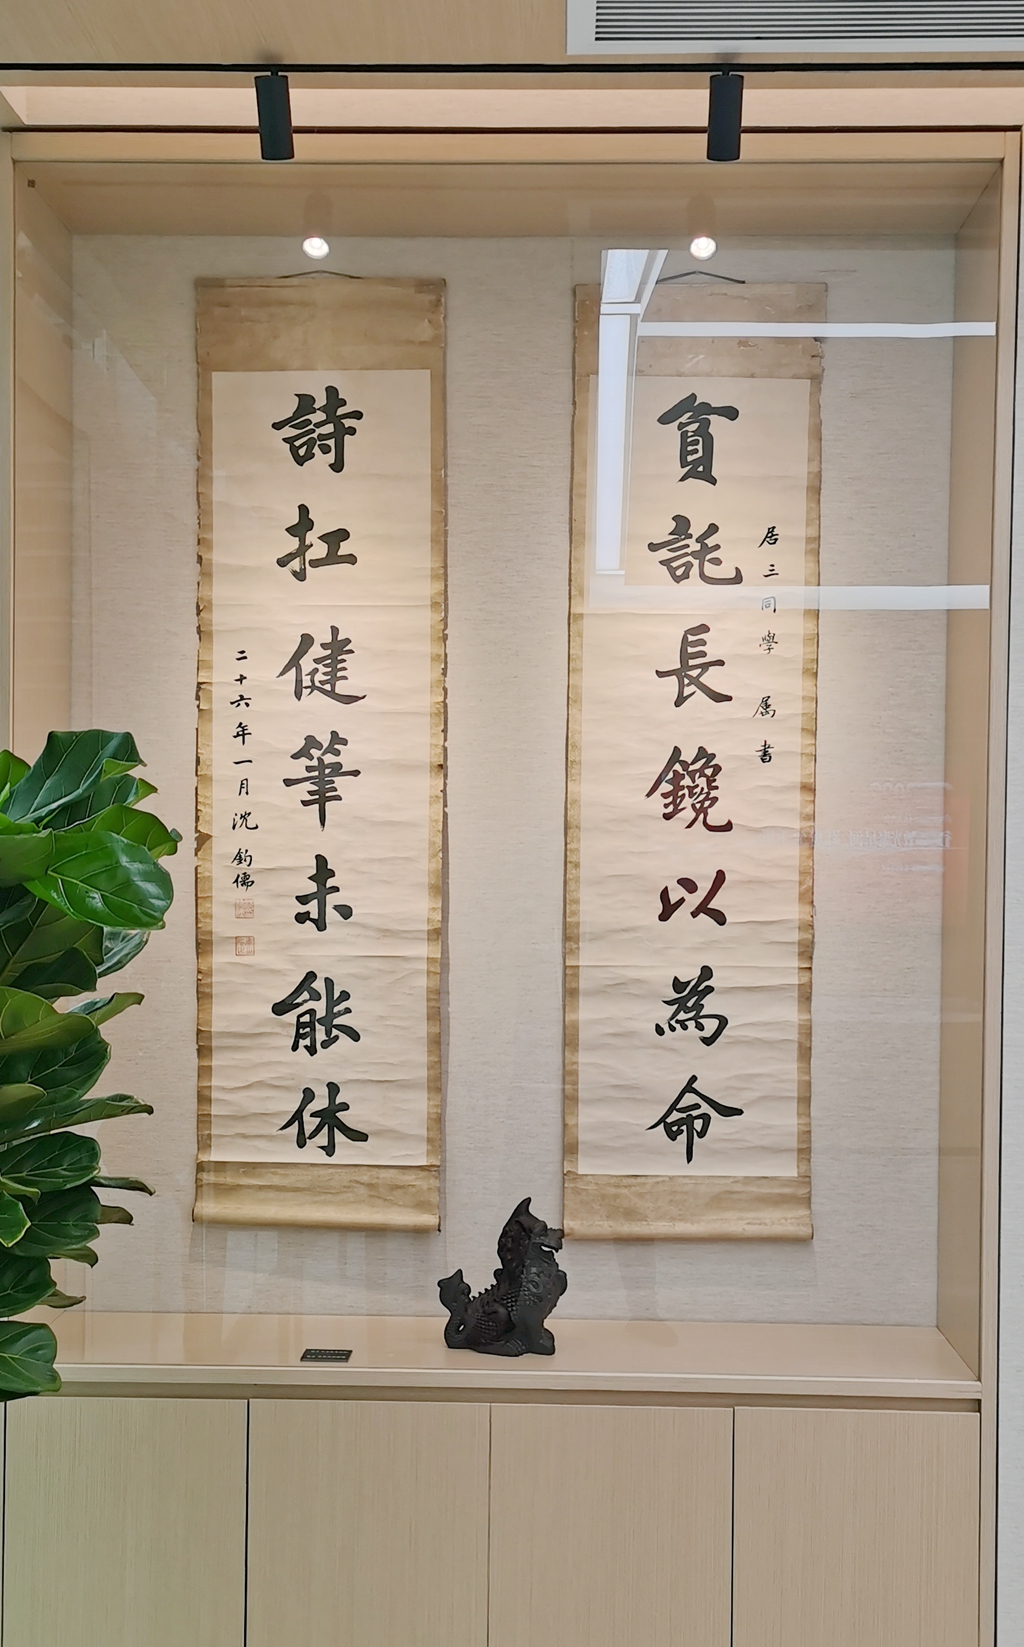 貧託長鑱以為命
居三同學 属書
詩扛健筆未能休
二十六年一月沈鈞儒